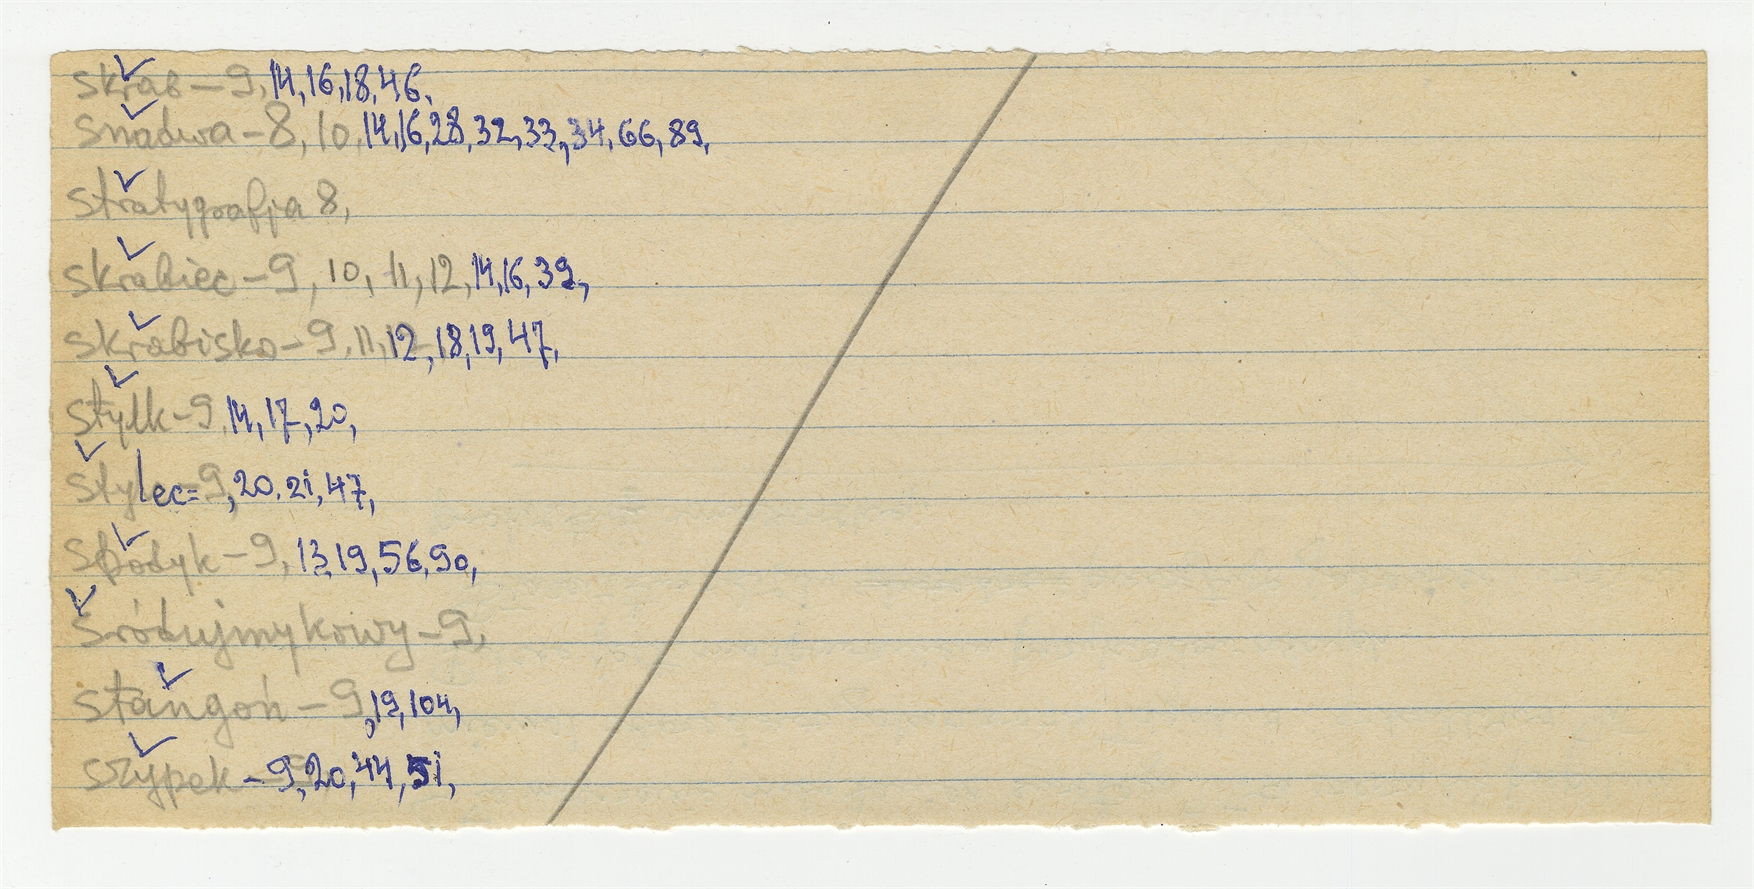 skrab – 9, 14, 16, 18, 46,
snadwa – 8, 10, 14, 16, 28, 32, 33, 34, 66, 89,
stratygrafja 8,
skrabiec – 9, 10, 11, 12, 14, 16, 39,
skrabisko – 9, 11, 12, 18, 19, 47,
stylk – 9, 14, 17, 20,
stylec = 9, 20, 21, 47,
spodyk – 9, 13, 19, 56, 90,
śródujmykowy – 9,
stangoń – 9, 19, 104,
szypek – 9, 20, 44, 51,